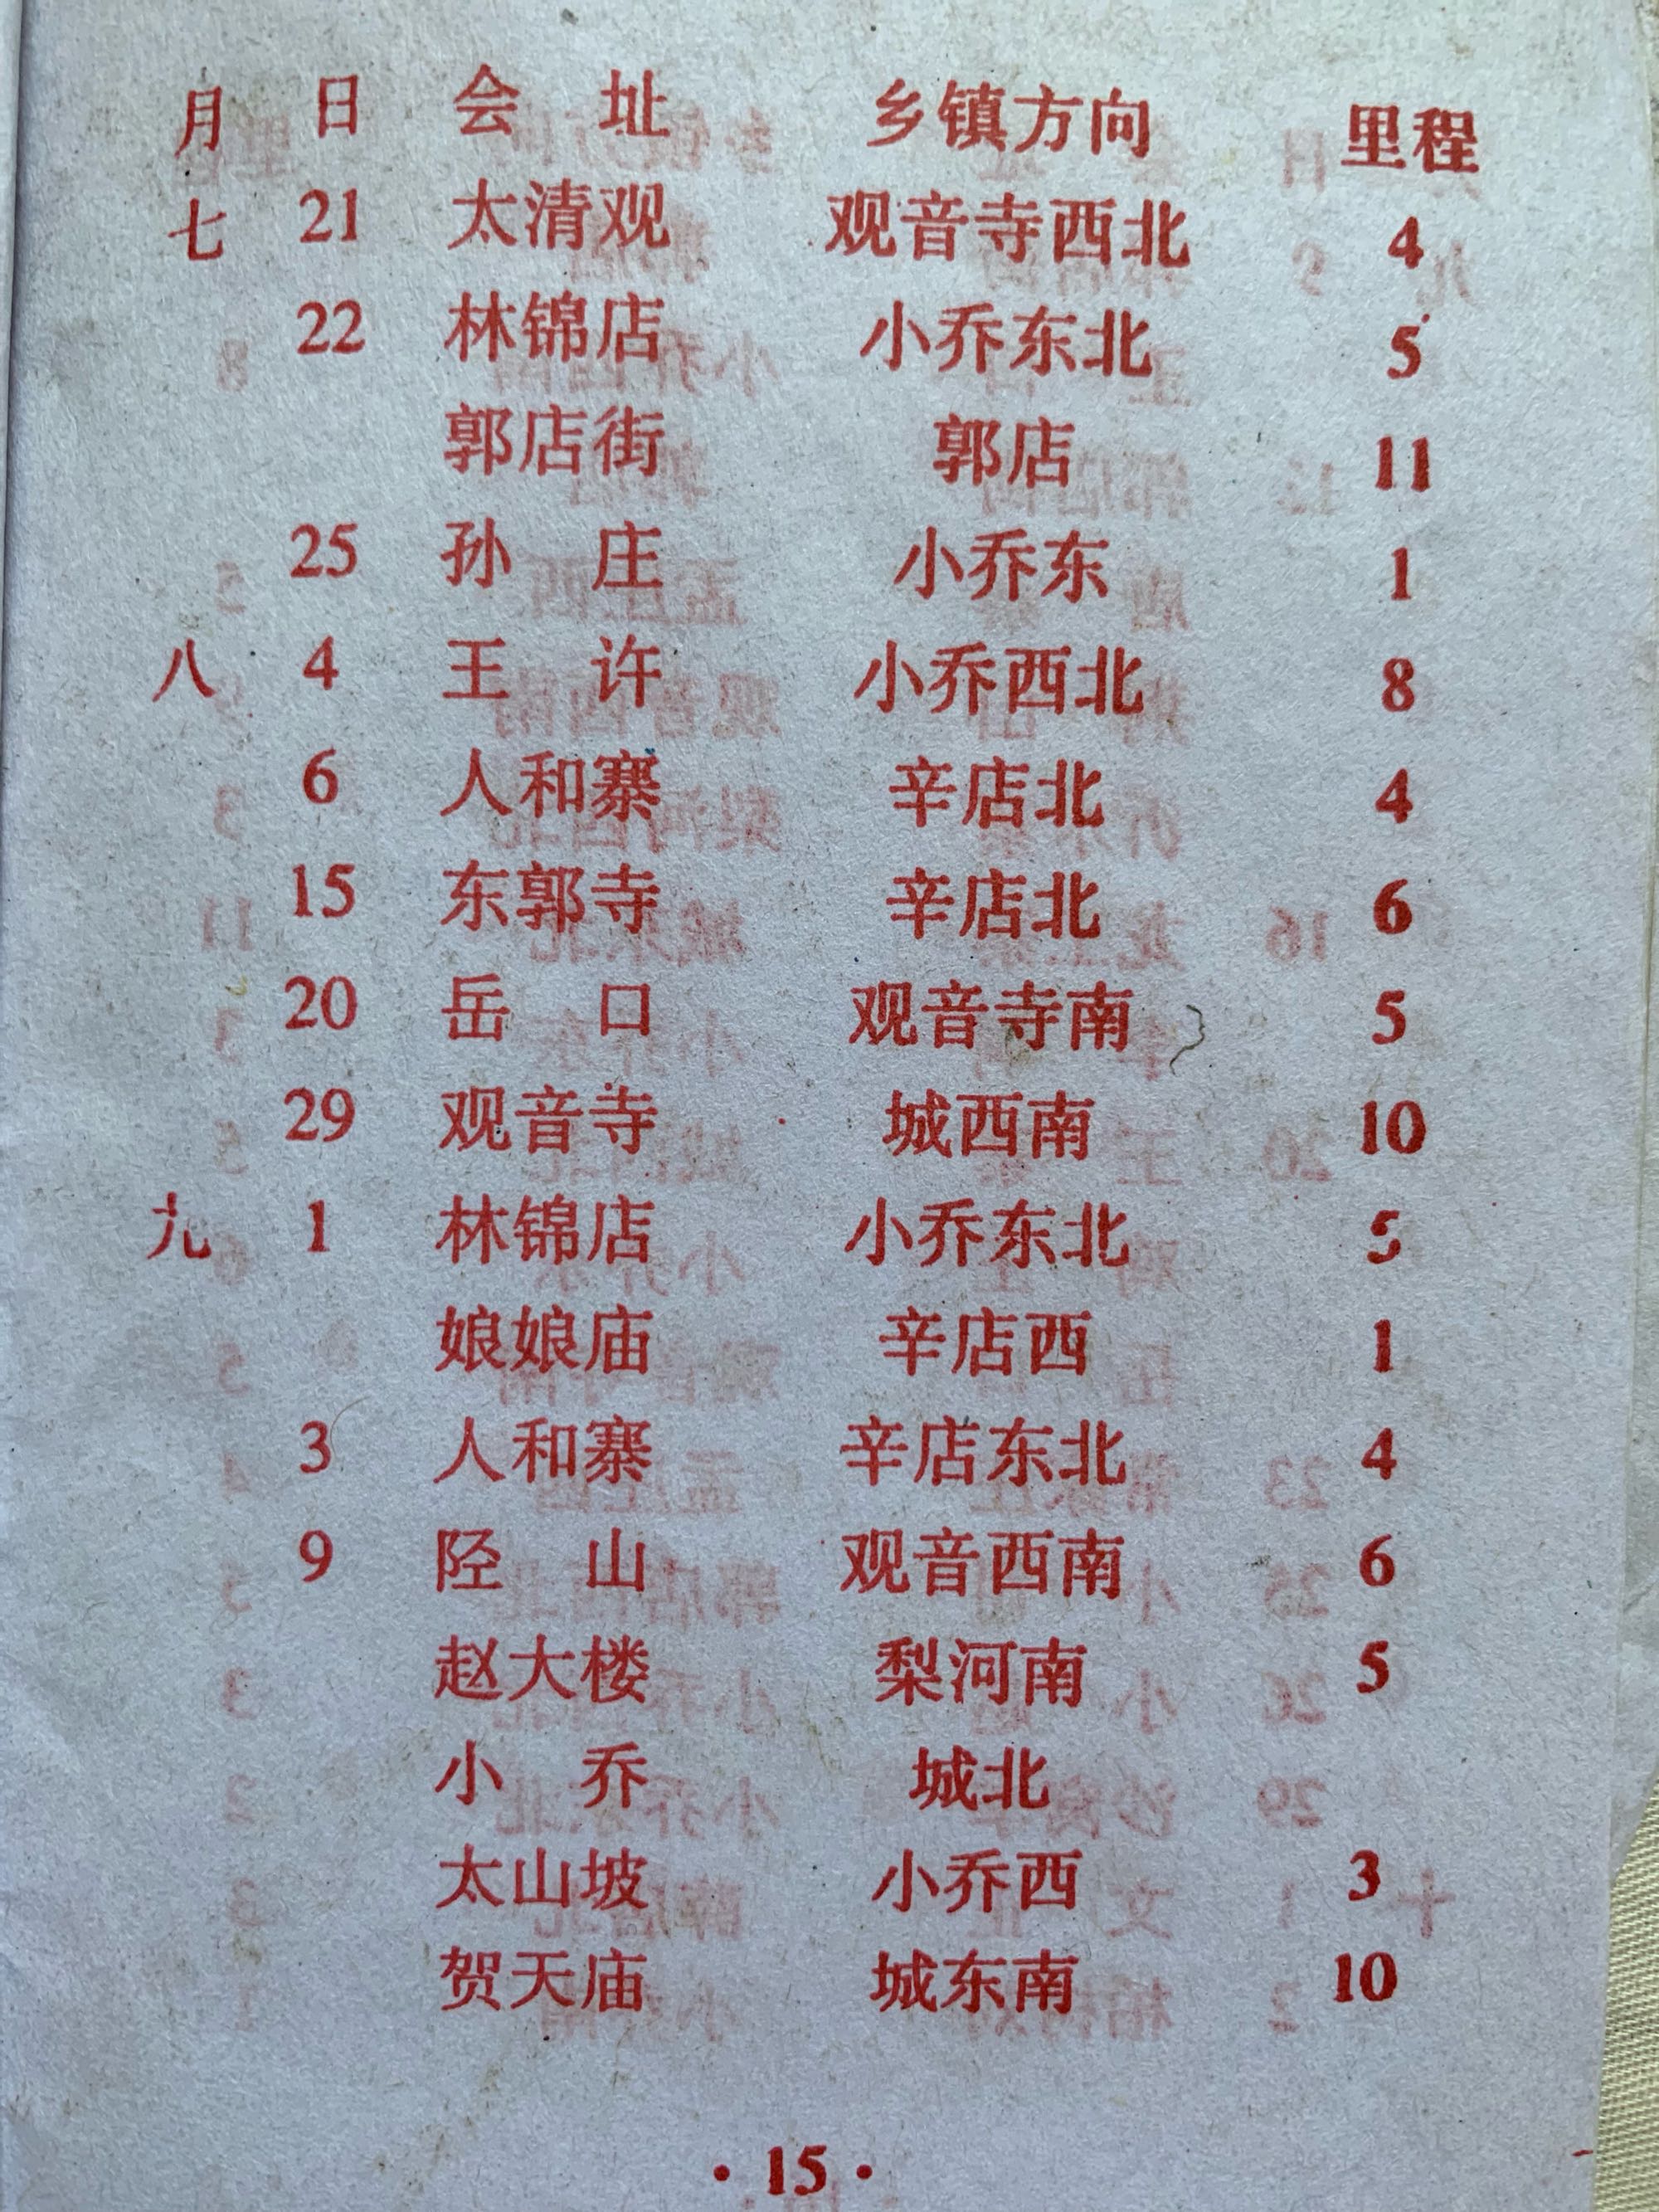 月 日 会 址 乡镇方向 里程
七 21 太清观 观音寺西北 4
22 林锦店 小乔东北 5
郭店街 郭店 11
25 孙 庄 小乔东 1
八 4 王 许 小乔西北 8
6 人和寨 辛店北 4
15 东郭寺 辛店北 6
20 岳 口 观音寺南 5
29 观音寺 城西南 10
九 1 林锦店 小乔东北 5
娘娘庙 辛店西 1
3 人和寨 辛店东北 4
9 陉 山 观音西南 6
赵大楼 梨河南 5
小 乔 城北
太山坡 小乔西 3
贺天庙 城东南 10
·15·